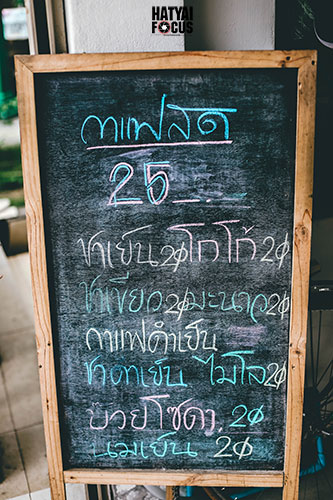 HATYAI
FOCUS
กาแฟสด
25
ชาเย็น 20 โกโก้ 20
ชาเขียว 20 มะนาว 20
กาแฟดำเย็น
ชาดำเย็น ไมโล 20
บ๊วยโซดา 20
นมเย็น 20